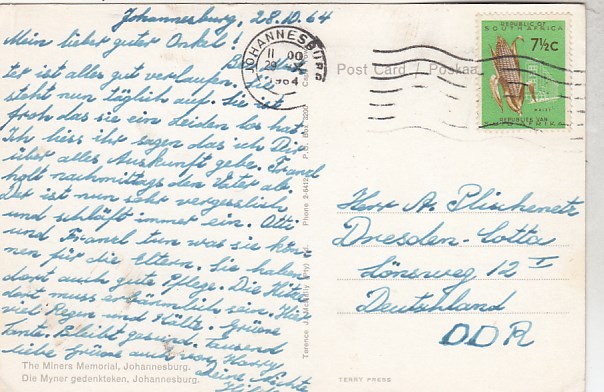 Johannesburg, 28.10.64
Mein lieber guter Onkel! Bei
ter ist alles gut verlaufen. Sie
steht nun täglich auf. Sie ist
froh das sie ein Leiden los hat.
Ich liess ihr sagen das ich Dir
über alles Auskunft gebe. Franzl
holt nachmittags den Vater ab.
Der ist nun sehr vergesslich
und schläft immer ein. Otti
und Franzl tun was sie kön
nen für die Eltern. Sie haben
dort auch gute Pflege. Die Hitze
dort muss erbärmlich sein. Hier
viel Regen und Kühle. Grüsse
Tante. Bleibt gesund. tausend
liebe Grüsse auch von Harry
Deine Nichte
JOHANNESBURG
11 00
29
1964
Post Card / Poskaart
REPUBLIC OF
SOUTH AFRICA
7½c
REPUBLIEK VAN
SUID-AFRIKA
Herr A. Plischenete
Dresden-Cotta
Lönsweg 12 I
Deutschland
DDR
The Miners Memorial, Johannesburg.
Die Myner gedenkteken, Johannesburg.
TERRY PRESS